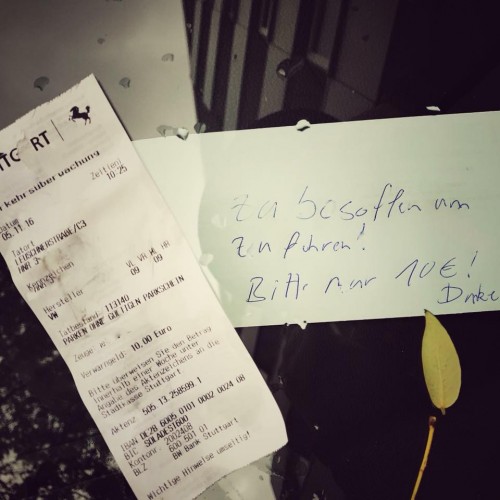 TTG RT
rkehrsüberwachung
Datum
Zeit(en)
05.11.16
10:25
Tatort
LEUSCHNERSTRAßE/C3
Kennzeichen
VL VR HL HR
09 09
Hersteller
VW
Tatbestand: 113140
PARKEN OHNE GÜLTIGEN PARKSCHEIN
Zeuge
Verwarngeld: 10,00 Euro
Bitte überweisen Sie den Betrag
innerhalb einer Woche unter
Angabe des Aktenzeichens an die
Stadtkasse Stuttgart
Aktenz. 505 13.258599 1
IBAN DE28 6005 0101 0002 0024 08
BIC SOLADEST600
Kontonr. 2002408
BLZ 600 501 01
BW Bank Stuttgart
Wichtige Hinweise umseitig!
Zu besoffen um
zu fahren!
Bitte nur 10€!
Danke